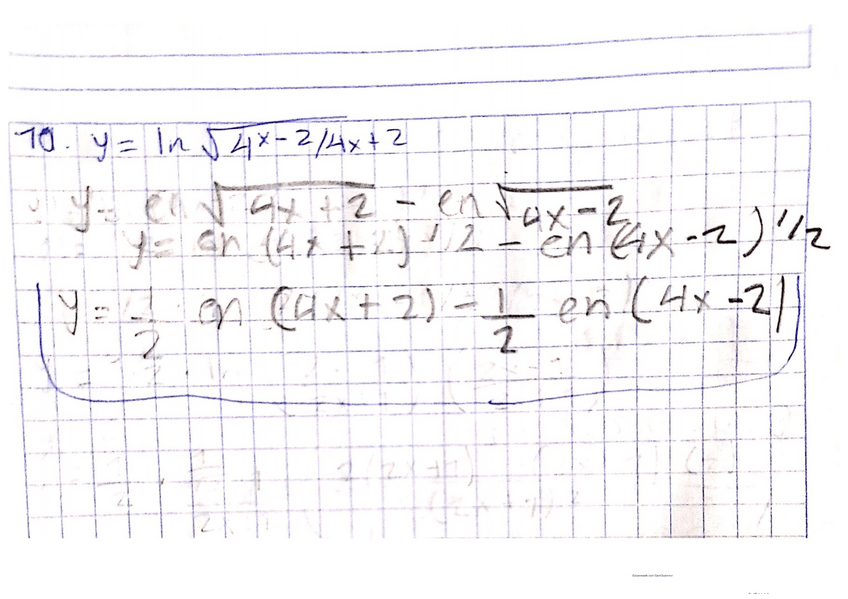 10. y = ln √4x-2/4x+2
y= en √4x+2 - en √4x-2
y= en (4x+2) 1/2 - en (4x-2) 1/2
y= 1/2 en (4x+2) - 1/2 en (4x-2)